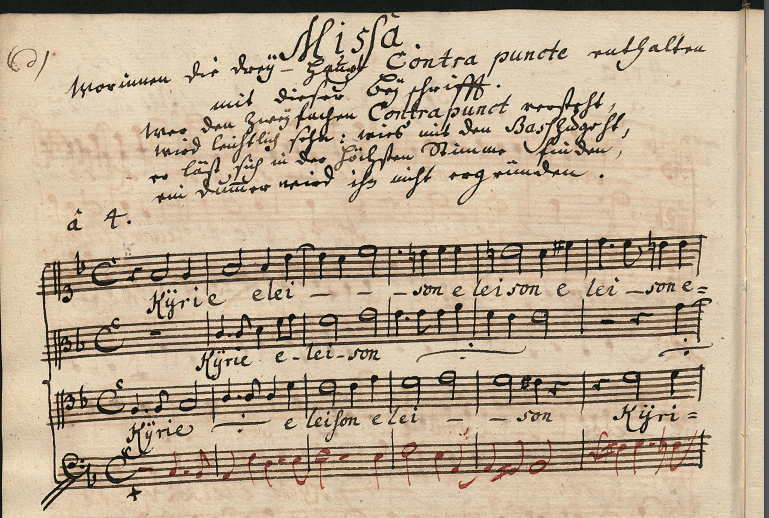 Missa
Worinnen die drey-Haupt Contra puncte enthalten
mit dieser beyschrifft.
wer den zweyfachen Contrapunct versteht,
wird leichtlich sehn: wies mit den Bass zugeht,
er läst sich in der höchsten Stimme finden,
ein dummer wird ihn nicht ergründen.
à 4.
Kÿrie elei - - - son e leison e lei - son e=
Kÿrie e-lei-son
Kÿrie e leison e lei - - son Kÿri=